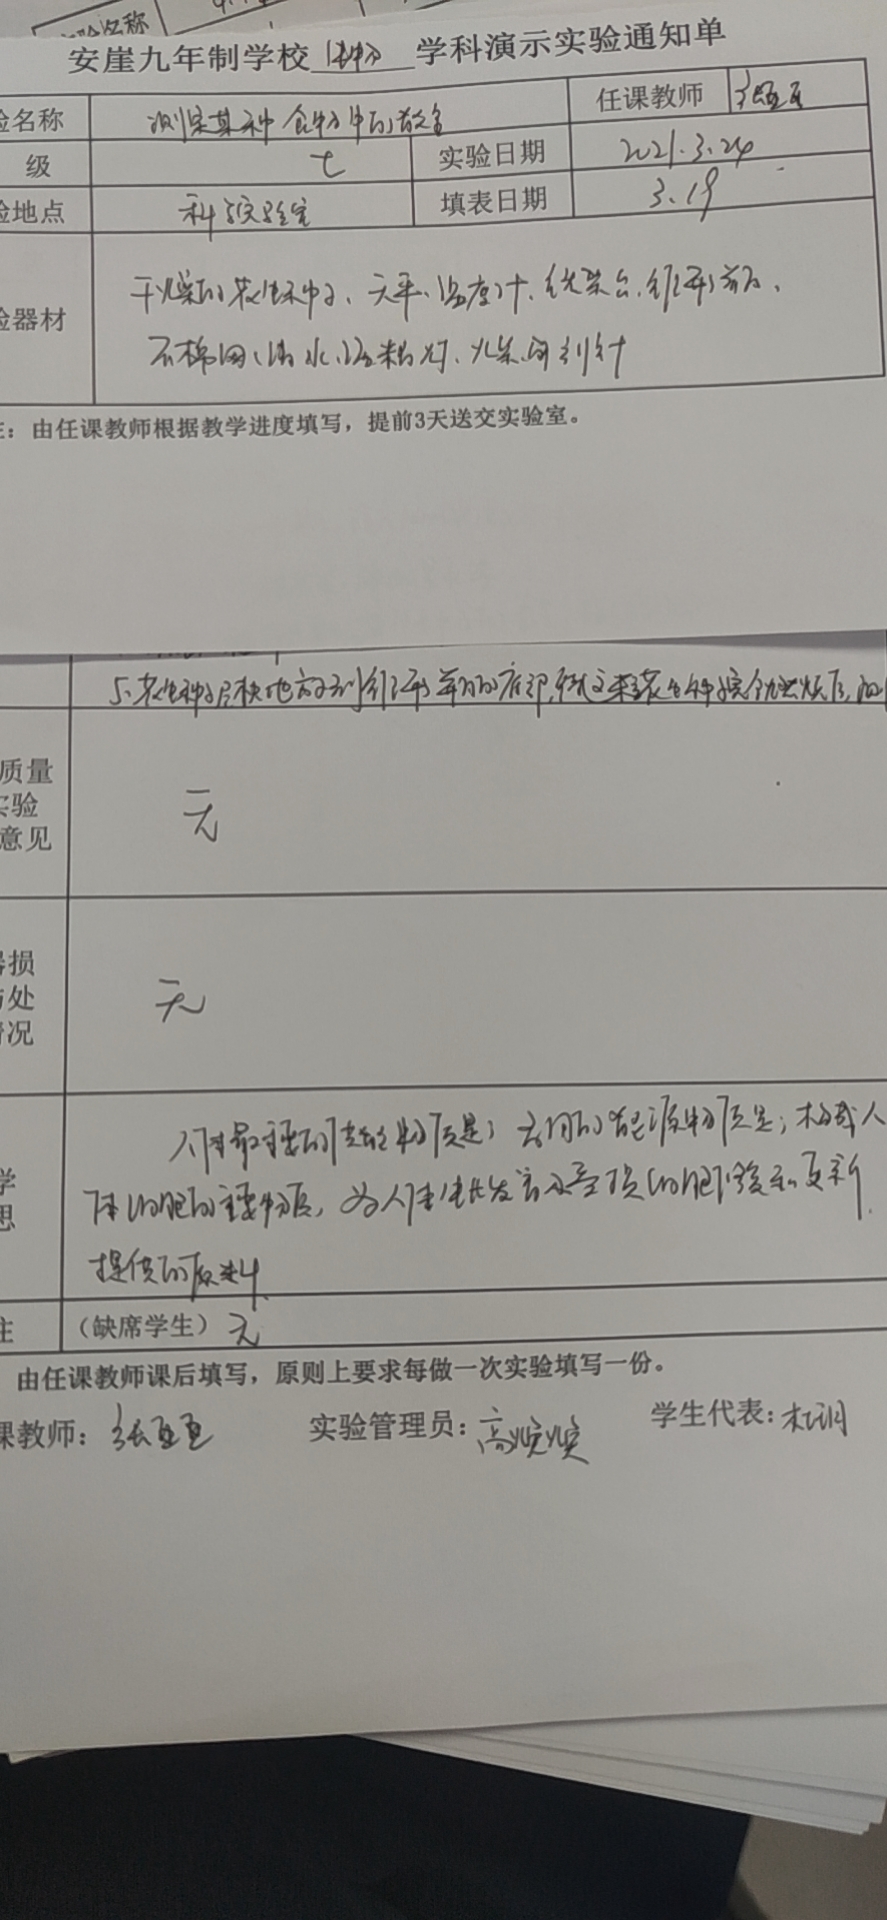 验名称
安崖九年制学校 生物 学科演示实验通知单
验名称 测定某种食物中的能量 任课教师 张亚亚
级 七 实验日期 2021.3.24
验地点 科学实验室 填表日期 3.19
验器材
干燥的花生种子、天平、温度计、铁架台、锥形瓶、
石棉网、清水、酒精灯、火柴、解剖针
注：由任课教师根据教学进度填写，提前3天送交实验室。
5.花生种子尽快地放到锥形瓶的底部，待这粒花生种子完全燃烧后，
质量
实验
意见
无
器损
与处
情况
无
学
思
人体最主要的供能物质是； 的能源物质是；构成人
体细胞的主要物质，为人体生长发育及受损细胞修复和更新
提供的原料
注 （缺席学生）无
由任课教师课后填写，原则上要求每做一次实验填写一份。
课教师：张亚亚 实验管理员：高 学生代表：